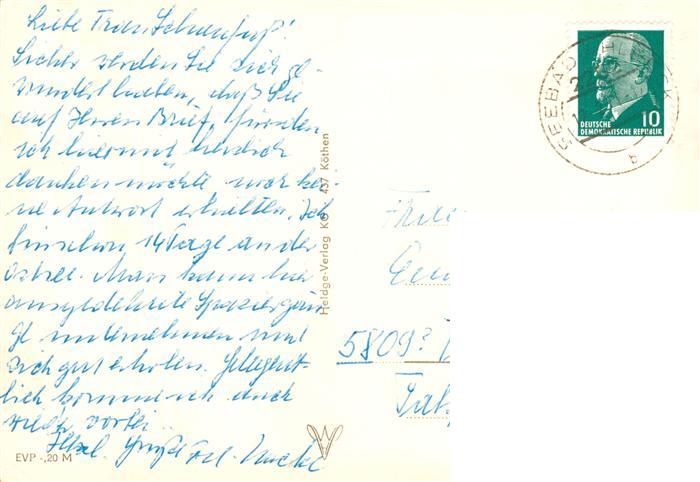 Liebe Frau Schaufuß!
Sicher werden Sie sich ge-
wundert haben, daß Sie
auf Ihren Brief, für den
ich hiermit herzlich
danken möchte noch kei-
ne Antwort erhielten. Ich
bin schon 14 Tage an der
Ostsee. Man kann hier
ausgedehnte Spaziergän-
ge unternehmen und
sich gut erholen. Gelegent-
lich komme ich auch
wieder vorbei.
Herzl. Grüße
EVP -,20 M
Heldge-Verlag KG 437 Köthen
SEEBAD
DEUTSCHE
DEMOKRATISCHE REPUBLIK 10
5809